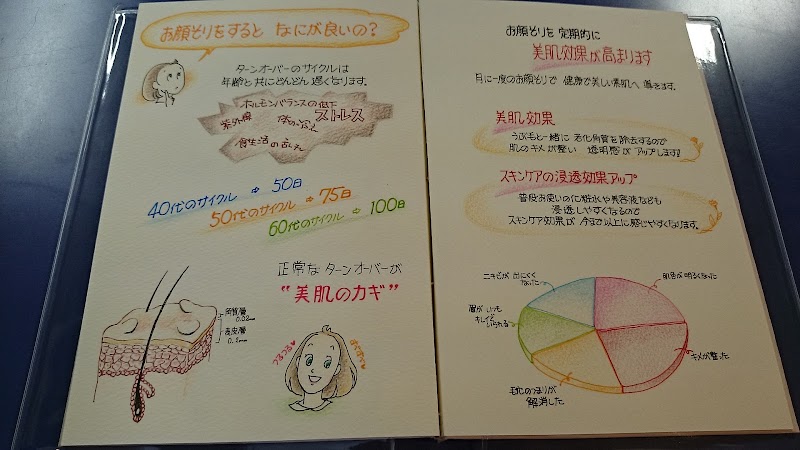 お顔そりをすると なにが良いの?
ターンオーバーのサイクルは
年齢と共にどんどん遅くなります。
ホルモンバランスの低下
紫外線
体の冷え
ストレス
食生活の乱れ
40代のサイクル ⇒ 50日
50代のサイクル ⇒ 75日
60代のサイクル ⇒ 100日
正常な ターンオーバーが
"美肌のカギ"
角質層
0.02mm
表皮層
0.2mm
つるつる
お顔そりを 定期的に
美肌効果が高まります
月に一度のお顔そりで 健康で美しい素肌へ 導きます。
美肌効果
うぶ毛と一緒に 老化角質を除去するので
肌のキメが整い 透明感が アップします!
スキンケアの浸透効果アップ
普段お使いの化粧水や美容液なども
浸透しやすくなるので
スキンケア効果が 今まで以上に感じやすくなります。
ニキビが出にくく
なった
肌色が明るくなった
眉がいつも
キレイで
いられる
キメが整った
毛穴のつまりが
解消した